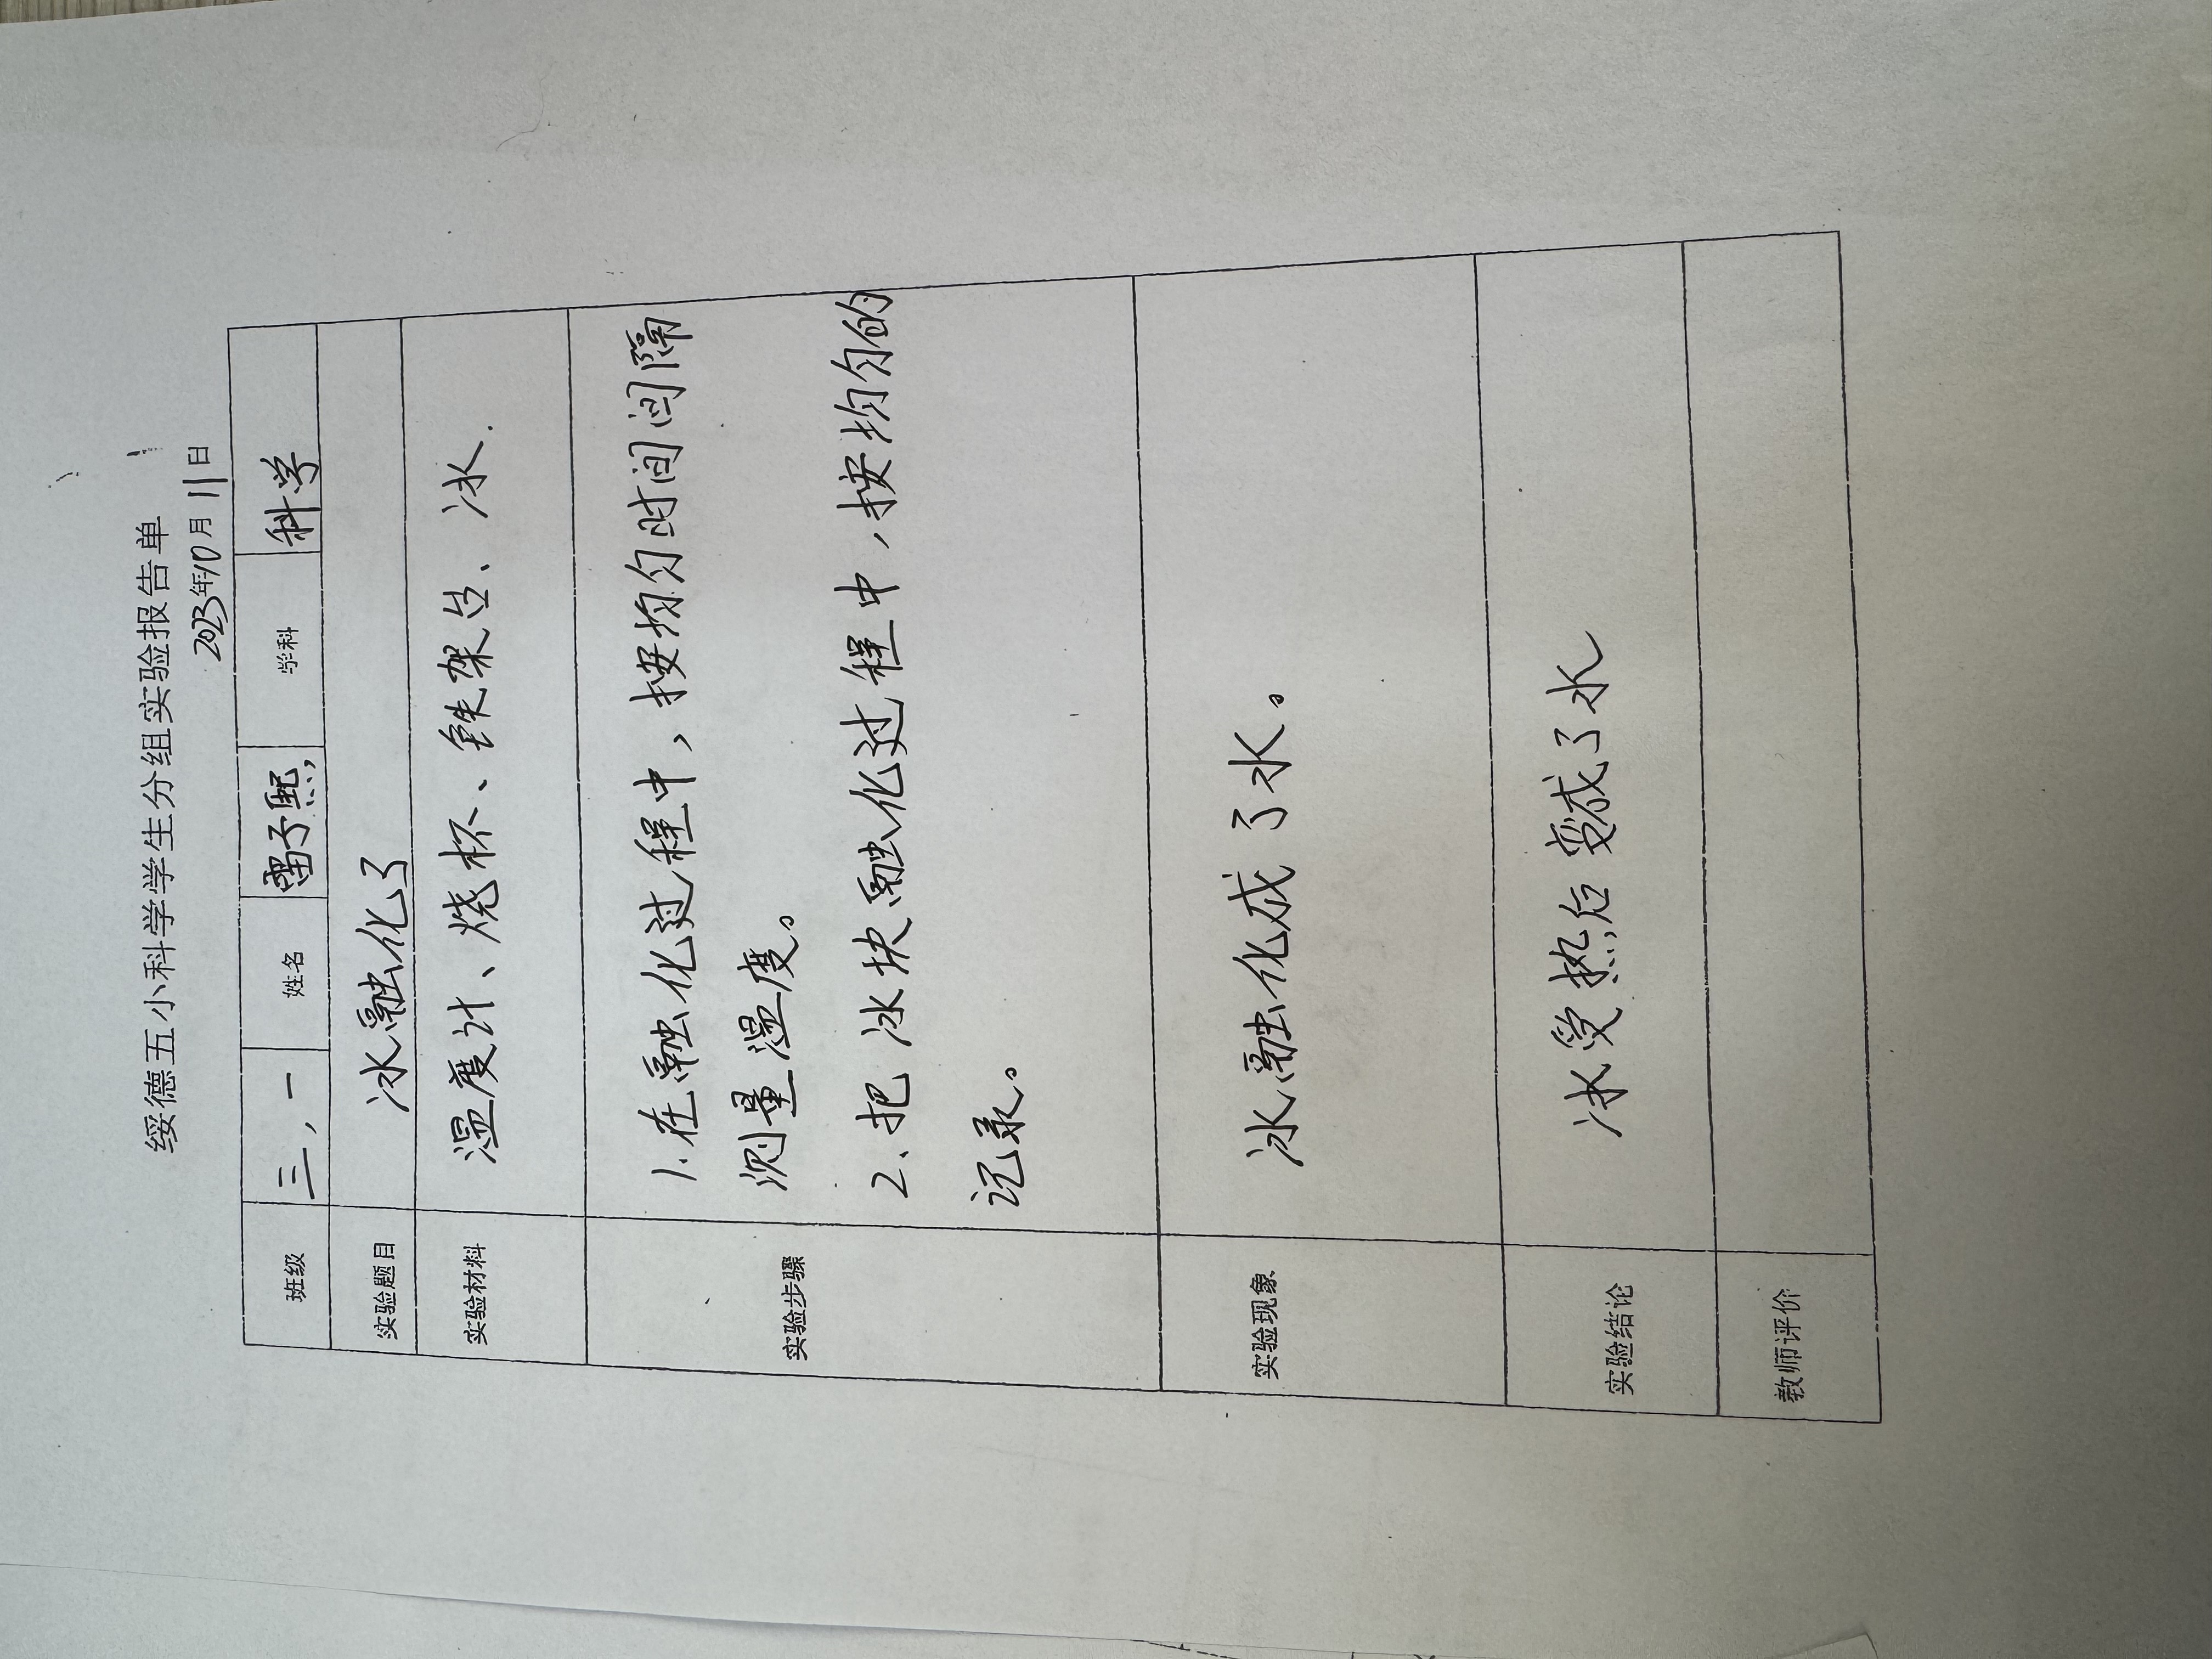 绥德五小科学学生分组实验报告单
2023年10月11日
班级 三,一 姓名 雷子熙 学科 科学
实验题目 冰融化了
实验材料 温度计、烧杯、铁架台、冰.
实验步骤
1.在融化过程中,按均匀时间间隔
测量温度。
2、把冰块融化过程中,按均匀的
记录。
实验现象 冰融化成了水。
实验结论 冰受热后变成了水
教师评价